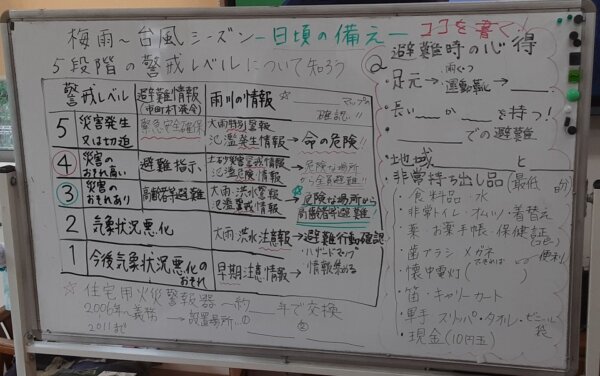 梅雨〜台風シーズン―日頃の備え―
ココを書く!
5段階の警戒レベルについて知ろう
警戒レベル 避難情報(市町村発令) 雨川の情報 ☆____マップで確認!!
5 災害発生又は切迫 緊急安全確保 大雨特別警報 氾濫発生情報 → 命の危険!!
4 災害のおそれ高い 避難指示 土砂災害警戒情報 氾濫危険情報 → 危険な場所から全員避難!!
3 災害のおそれあり 高齢者等避難 大雨・洪水警報 氾濫警戒情報 → 危険な場所から高齢者等避難
2 気象状況悪化 大雨・洪水注意報 → 避難行動確認
1 今後気象状況悪化のおそれ 早期注意情報 → ・ハザードマップ ・情報集める
☆住宅用火災警報器 〜約___年で交換
2006年〜義務 → 設置場所 ① ②
2011まで
避難時の心得
・足元→雨ぐつ 運動靴→____.
・長い___か___を持つ!
・______での避難
・地域______と______
非常持ち出し品(最低 日分)
・食料品・水
・非常トイレ・オムツ・着替え
・薬 お薬手帳・保健証
・歯ブラシ メガネ
・懐中電灯( ) 便利
・笛・キャリーカート
・軍手 スリッパ・タオル・ビニール袋
・現金(10円玉)